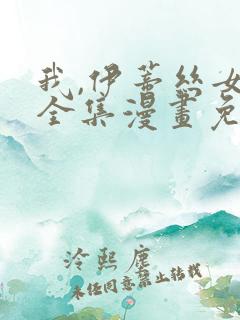 我,伊蒂丝女
全集漫畫免
冷熙塵
未经同意禁止转载